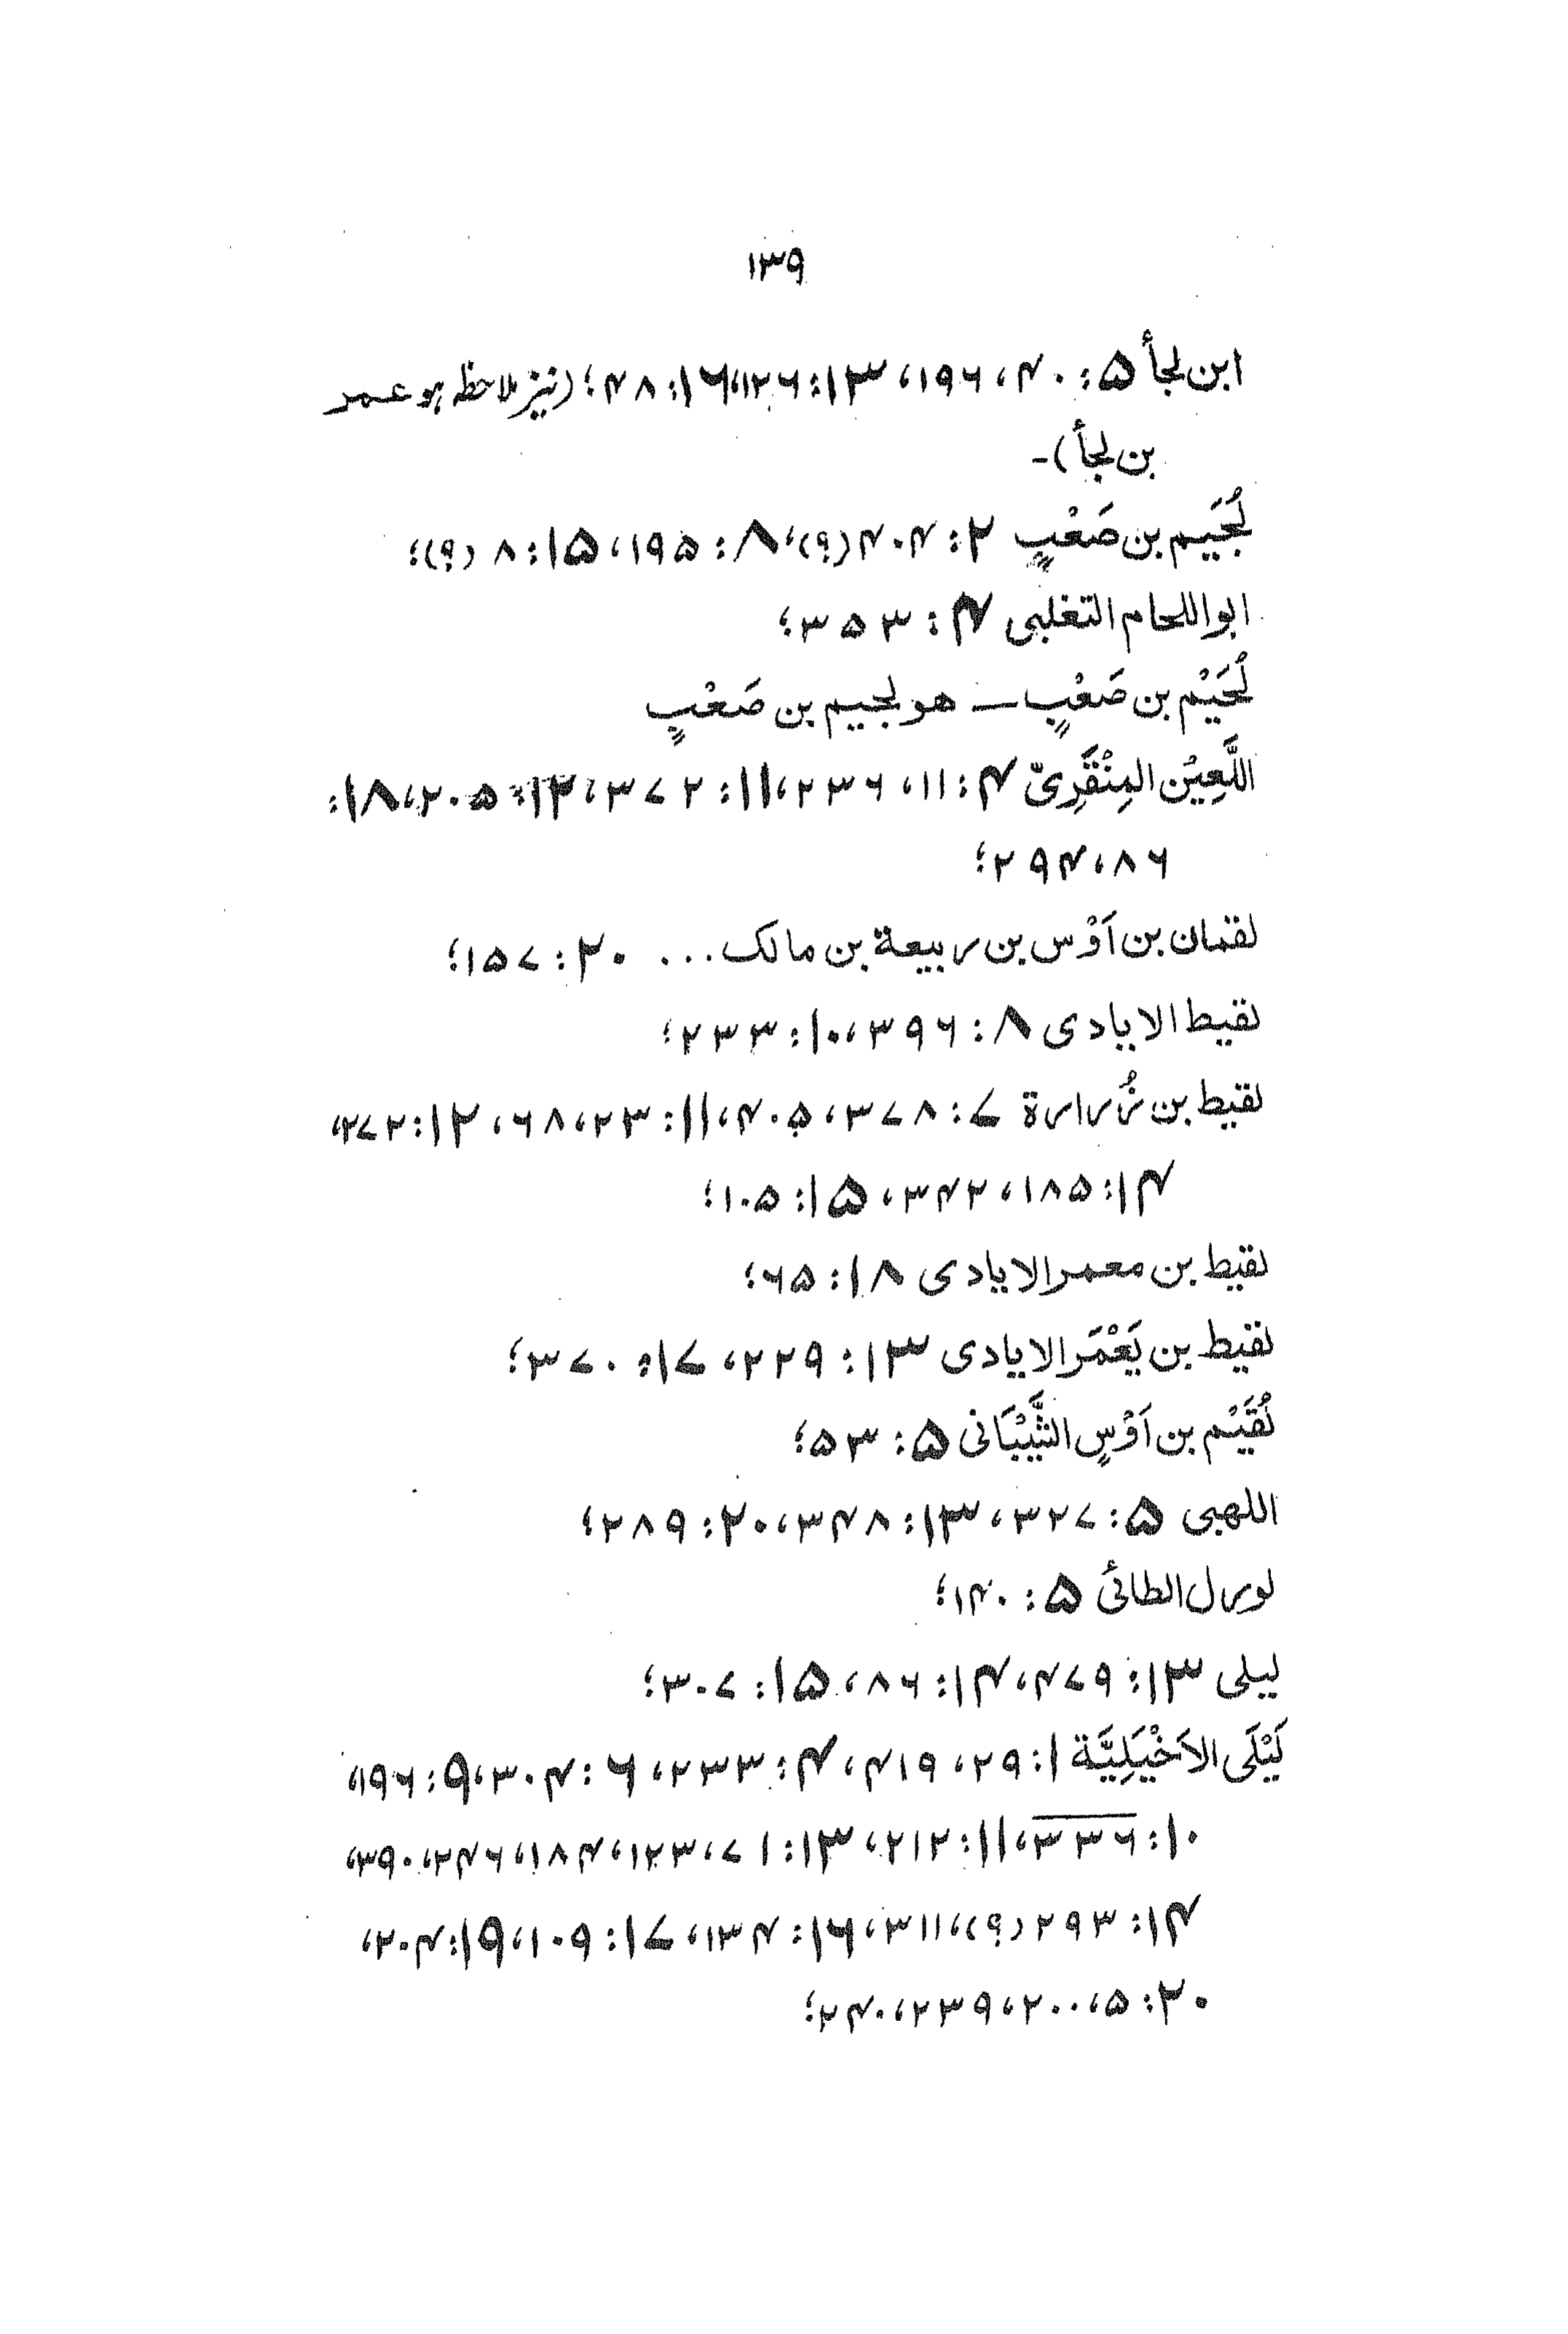 ۱۳۹
ابن لجأ ۵: ۴۰، ۱۹۶، ۱۳: ۱۲۶، ۱۶: ۴۸؛ (نیز ملاحظہ ہو عمر
بن لجأ)۔
لُجَیم بن صَعْبٍ ۲: ۴۰۴ (؟)، ۸: ۱۹۵، ۱۵: ۸ (؟)؛
ابو اللحام التغلبی ۴: ۳۵۳؛
لُحَیْم بن صَعْبٍ — ھو لجیم بن صَعْبٍ
اللَّعِیْن المِنْقَرِیّ ۴: ۱۱، ۲۳۶، ۱۱: ۳۷۲، ۱۲: ۲۰۵، ۱۸:
۸۶، ۲۹۴؛
لقمان بن اَوْس بن ربیعة بن مالک... ۲۰: ۱۵۷؛
لقیط الایادی ۸: ۳۹۶، ۱۰: ۲۳۳؛
لقیط بن زُرارة ۷: ۳۷۸، ۴۰۵، ۱۱: ۲۳، ۶۸، ۱۲: ۲۷۲،
۱۴: ۱۸۵، ۳۴۲، ۱۵: ۱۰۵؛
لقیط بن معمر الایادی ۱۸: ۶۵؛
لقیط بن یَعْمَر الایادی ۱۳: ۲۲۹، ۱۷: ۳۷۰؛
لُقَیْم بن اَوْسٍ الشَّیْبَانی ۵: ۵۳؛
اللھبی ۵: ۳۲۷، ۱۳: ۳۴۸، ۲۰: ۲۸۹؛
لورل الطائی ۵: ۱۴۰؛
لیلی ۱۳: ۴۷۹، ۱۴: ۸۶، ۱۵: ۳۰۷؛
لَیْلَی الاَخْیَلِیَّة ۱: ۲۹، ۴۱۹، ۴: ۲۳۳، ۶: ۳۰۴، ۹: ۱۹۶،
۱۰: ۳۳۶، ۱۱: ۲۱۲، ۱۳: ۷۱، ۱۲۳، ۱۸۴، ۲۴۶، ۳۹۰،
۱۴: ۲۹۳ (؟)، ۳۱۱، ۱۶: ۱۳۴، ۱۷: ۱۰۹، ۱۹: ۲۰۴،
۲۰: ۵، ۲۰۰، ۲۳۹، ۲۴۰؛